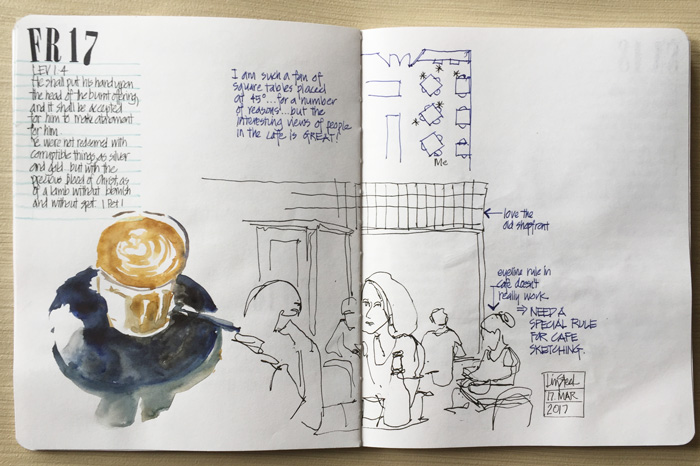 FR 17
LEV 1 4
He shall put his hand upon
the head of the burnt offering,
and it shall be accepted
for him to make atonement
for him.
We were not redeemed with
corruptible things as silver
and gold.. but with the
precious blood of Christ, as
of a lamb without blemish
and without spot. 1 Pet 1
I am such a fan of
square tables placed
at 45°... for a number
of reasons!... but the
interesting views of people
in the cafe is GREAT!
Me
love the
old shopfront
eyeline rule in
cafe doesn't
really work
⇒ NEED A
SPECIAL RULE
FOR CAFE
SKETCHING.
Liz Steel
17. MAR
2017